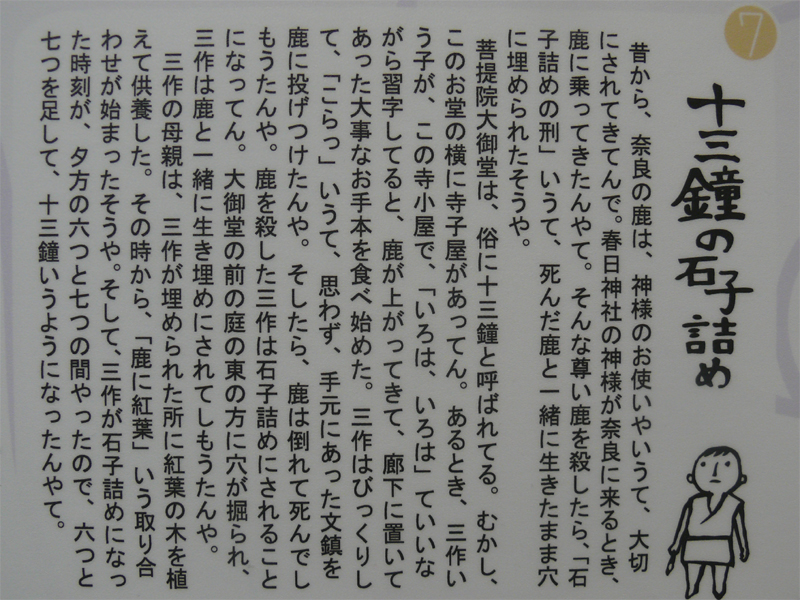 7
十三鐘の石子詰め
昔から、奈良の鹿は、神様のお使いやいうて、大切
にされてきてんで。春日神社の神様が奈良に来るとき、
鹿に乗ってきたんやて。そんな尊い鹿を殺したら、「石
子詰めの刑」いうて、死んだ鹿と一緒に生きたまま穴
に埋められたそうや。
菩提院大御堂は、俗に十三鐘と呼ばれてる。むかし、
このお堂の横に寺子屋があってん。あるとき、三作い
う子が、この寺小屋で、「いろは、いろは」ていいな
がら習字してると、鹿が上がってきて、廊下に置いて
あった大事なお手本を食べ始めた。三作はびっくりし
て、「こらっ」いうて、思わず、手元にあった文鎮を
鹿に投げつけたんや。そしたら、鹿は倒れて死んでし
もうたんや。鹿を殺した三作は石子詰めにされること
になってん。大御堂の前の庭の東の方に穴が掘られ、
三作は鹿と一緒に生き埋めにされてしもうたんや。
三作の母親は、三作が埋められた所に紅葉の木を植
えて供養した。その時から、「鹿に紅葉」いう取り合
わせが始まったそうや。そして、三作が石子詰めになっ
た時刻が、夕方の六つと七つの間やったので、六つと
七つを足して、十三鐘いうようになったんやて。